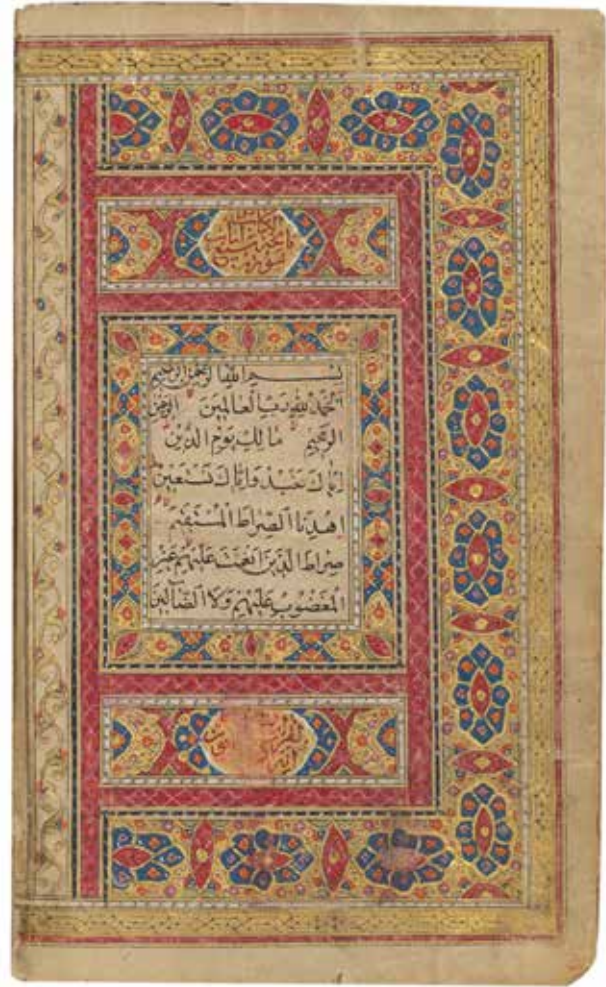 سورة فاتحة الكتاب سبع
بسم الله الرحمن الرحيم
الحمد لله رب العالمين الرحمن
الرحيم مالك يوم الدين
اياك نعبد واياك نستعين
اهدنا الصراط المستقيم
صراط الذين انعمت عليهم غير
المغضوب عليهم ولا الضالين